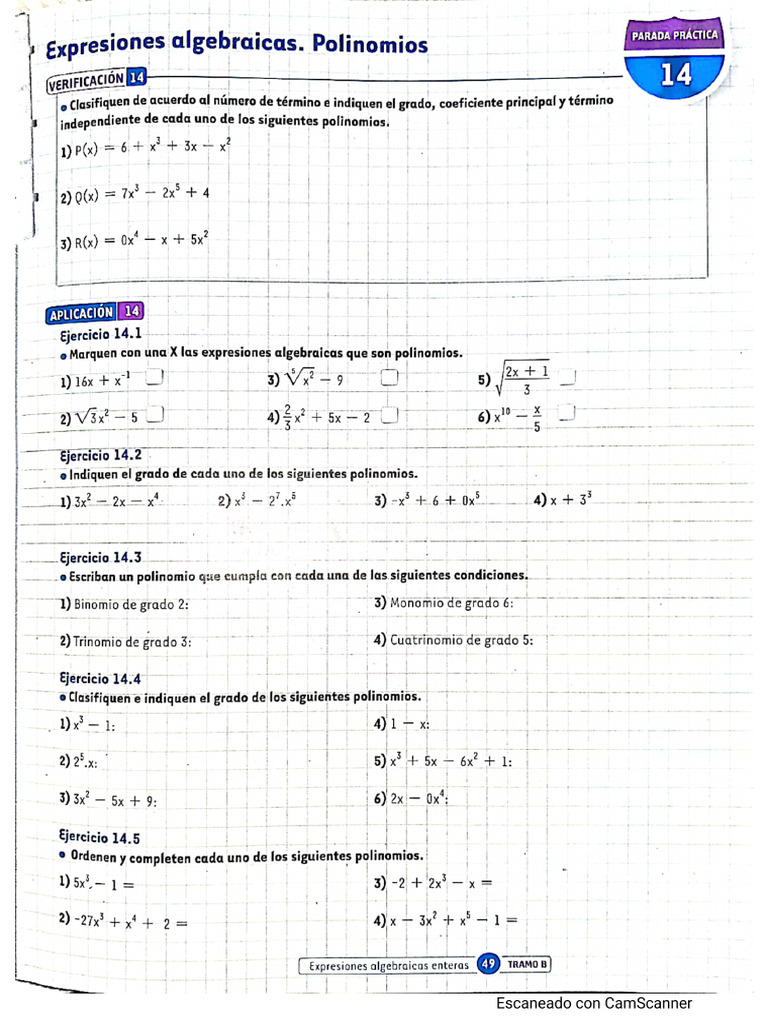 Expresiones algebraicas. Polinomios
PARADA PRÁCTICA
14
VERIFICACIÓN 14
• Clasifiquen de acuerdo al número de término e indiquen el grado, coeficiente principal y término
independiente de cada uno de los siguientes polinomios.
1) P(x) = 6 + x³ + 3x − x²
2) Q(x) = 7x³ − 2x⁵ + 4
3) R(x) = 0x⁴ − x + 5x²
APLICACIÓN 14
Ejercicio 14.1
• Marquen con una X las expresiones algebraicas que son polinomios.
1) 16x + x⁻¹ 3) ⁵√x² − 9 5) √(2x + 1 / 3)
2) √3x² − 5 4) 2/3 x² + 5x − 2 6) x¹⁰ − x/5
Ejercicio 14.2
• Indiquen el grado de cada uno de los siguientes polinomios.
1) 3x² − 2x − x⁴ 2) x³ − 2⁷.x⁵ 3) -x³ + 6 + 0x⁵ 4) x + 3³
Ejercicio 14.3
• Escriban un polinomio que cumpla con cada una de las siguientes condiciones.
1) Binomio de grado 2: 3) Monomio de grado 6:
2) Trinomio de grado 3: 4) Cuatrinomio de grado 5:
Ejercicio 14.4
• Clasifiquen e indiquen el grado de los siguientes polinomios.
1) x³ − 1: 4) 1 − x:
2) 2⁵.x: 5) x³ + 5x − 6x² + 1:
3) 3x² − 5x + 9: 6) 2x − 0x⁴:
Ejercicio 14.5
• Ordenen y completen cada uno de los siguientes polinomios.
1) 5x³ − 1 = 3) -2 + 2x³ − x =
2) -27x³ + x⁴ + 2 = 4) x − 3x² + x⁵ − 1 =
Expresiones algebraicas enteras 49 TRAMO B
Escaneado con CamScanner